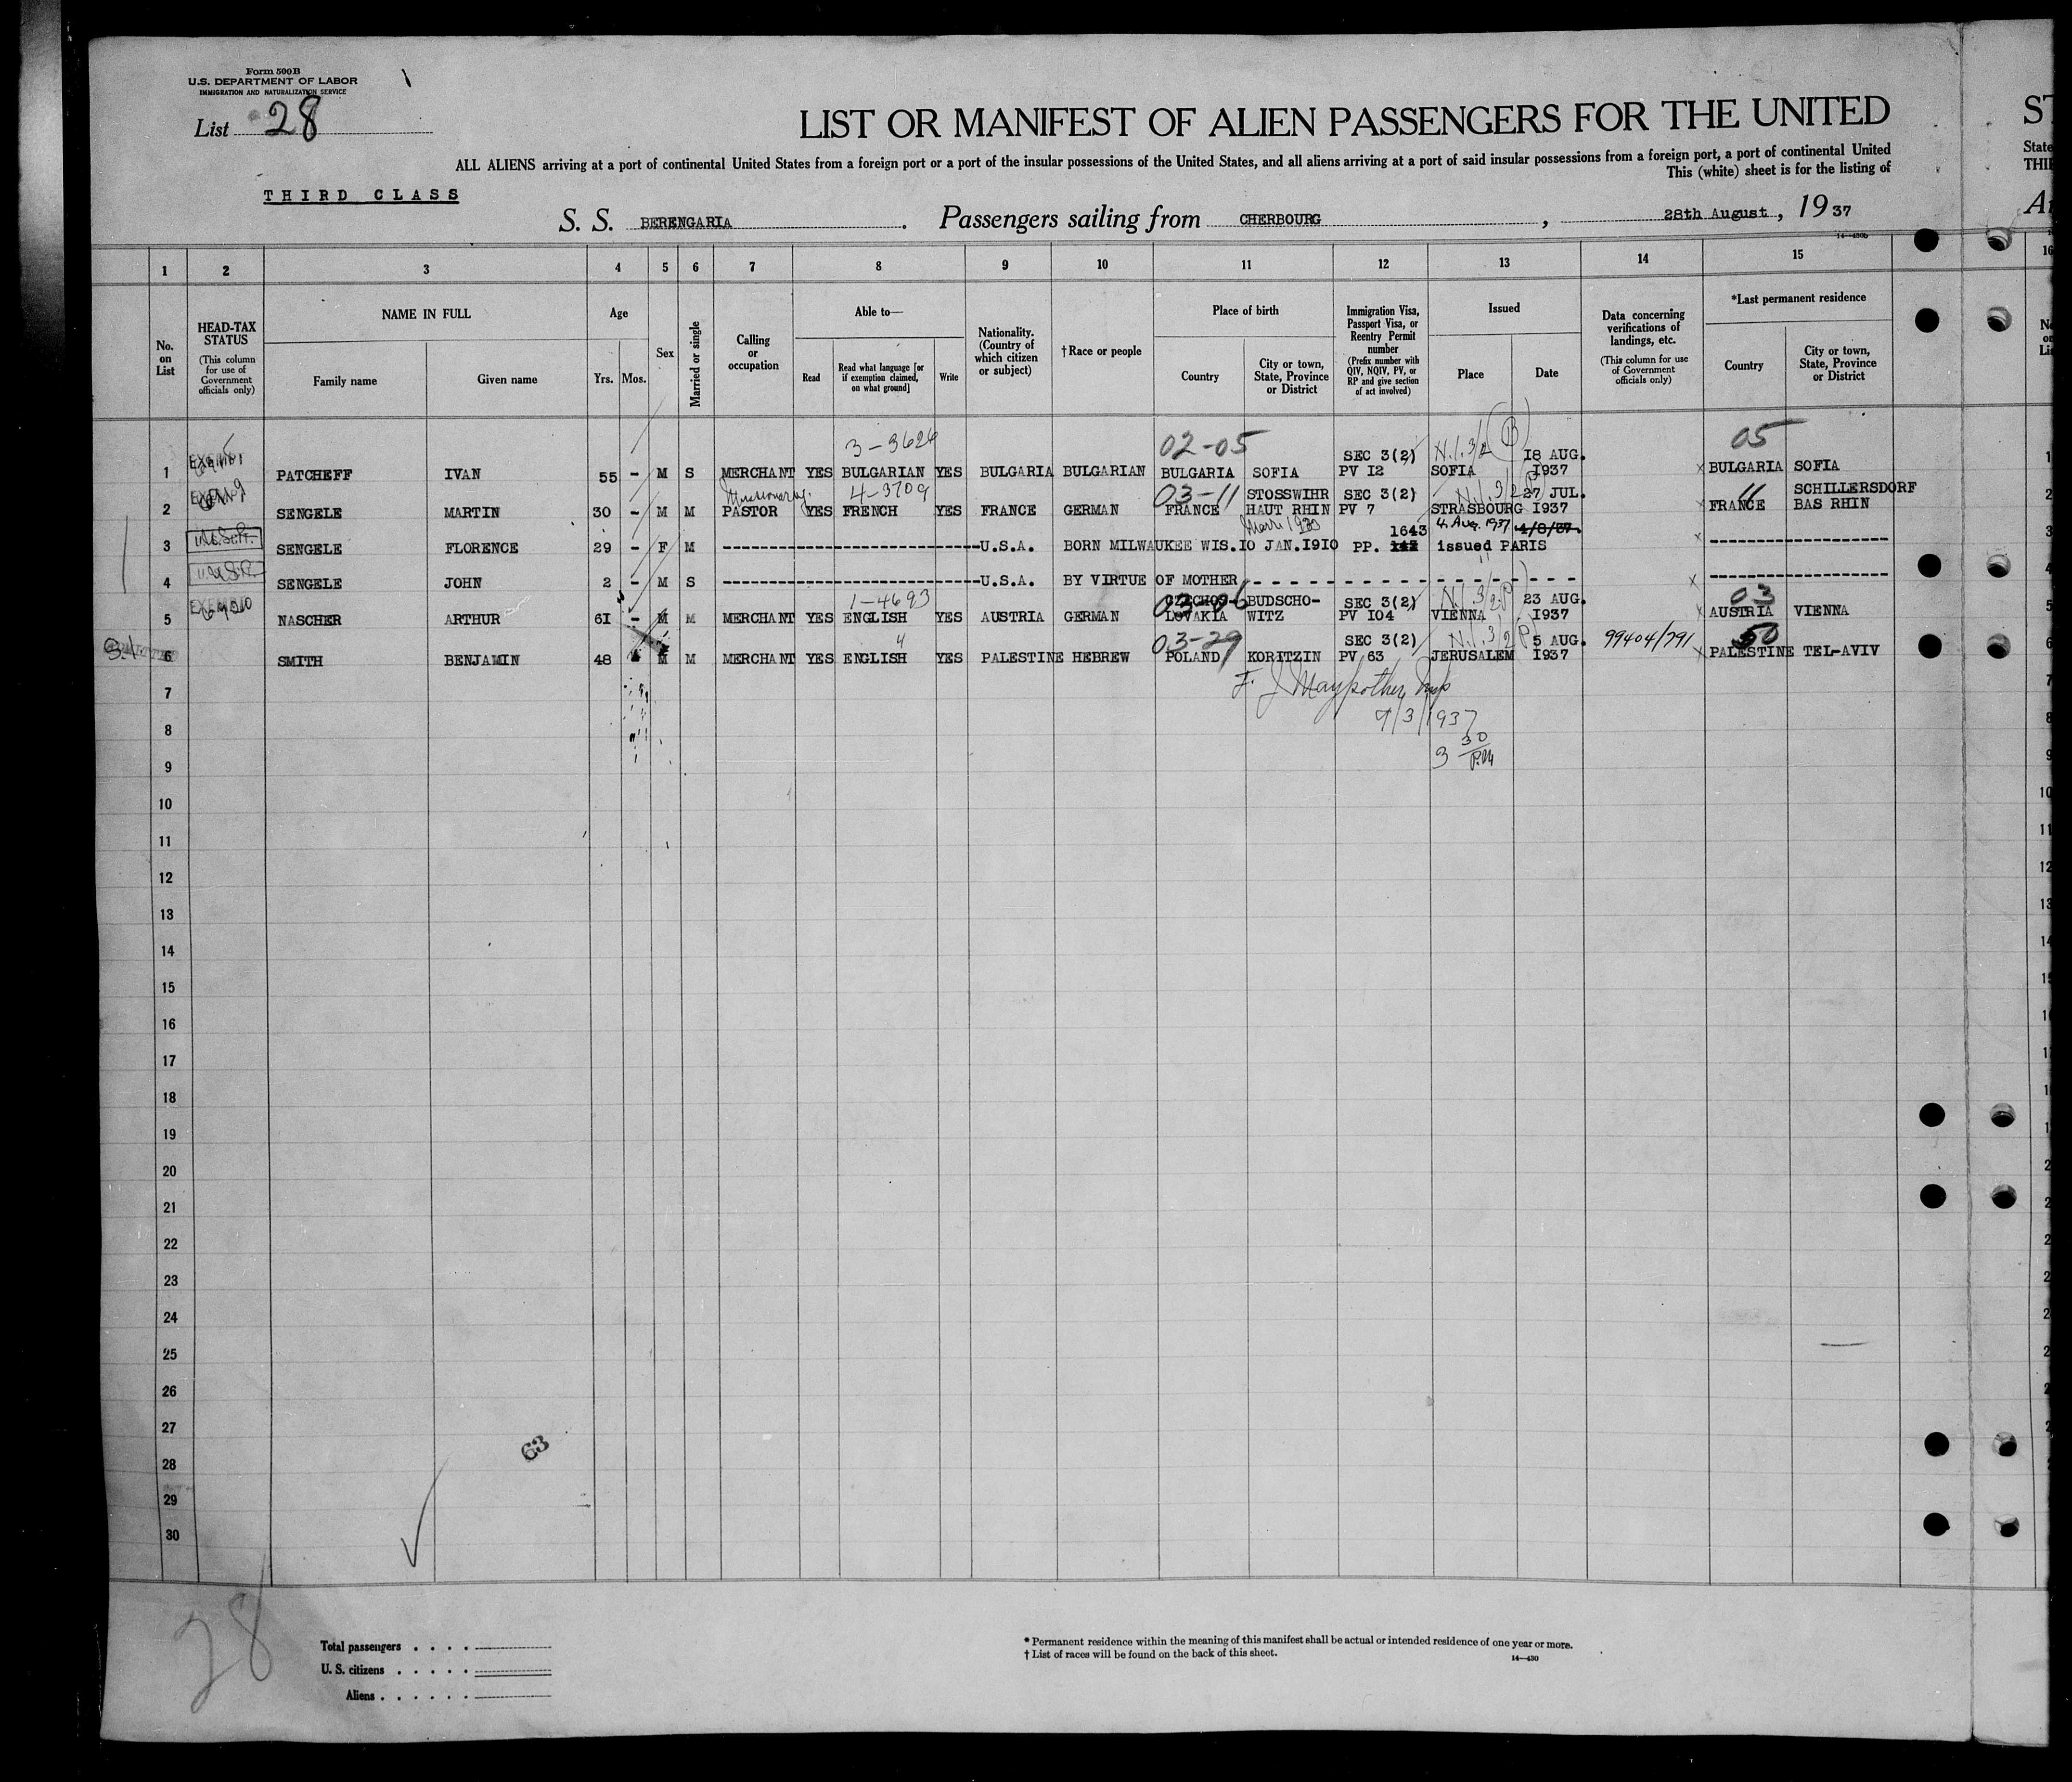 Form 500B
U.S. DEPARTMENT OF LABOR
IMMIGRATION AND NATURALIZATION SERVICE
List 28
LIST OR MANIFEST OF ALIEN PASSENGERS FOR THE UNITED
ST
ALL ALIENS arriving at a port of continental United States from a foreign port or a port of the insular possessions of the United States, and all aliens arriving at a port of said insular possessions from a foreign port, a port of continental United
State
This (white) sheet is for the listing of
THI
THIRD CLASS
S. S. BERENGARIA. Passengers sailing from CHERBOURG, 28th August, 1937
14—430b
1 2 3 4 5 6 7 8 9 10 11 12 13 14 15 16
No. on List
HEAD-TAX STATUS
(This column for use of Government officials only)
NAME IN FULL
Family name
Given name
Age
Yrs.
Mos.
Sex
Married or single
Calling or occupation
Able to—
Read
Read what language [or if exemption claimed, on what ground]
Write
Nationality. (Country of which citizen or subject)
†Race or people
Place of birth
Country
City or town, State, Province or District
Immigration Visa, Passport Visa, or Reentry Permit number
(Prefix number with QIV, NQIV, PV, or RP and give section of act involved)
Issued
Place
Date
Data concerning verifications of landings, etc.
(This column for use of Government officials only)
*Last permanent residence
Country
City or town, State, Province or District
3-3626 02-05 05
SEC 3(2) 18 AUG.
1 PATCHEFF IVAN 55 - M S MERCHANT YES BULGARIAN YES BULGARIA BULGARIAN BULGARIA SOFIA PV 12 SOFIA 1937 BULGARIA SOFIA
Missionary 4-3709 03-11 STOSSWIHR SEC 3(2) 27 JUL. 11 SCHILLERSDORF
2 SENGELE MARTIN 30 - M M PASTOR YES FRENCH YES FRANCE GERMAN FRANCE HAUT RHIN PV 7 STRASBOURG 1937 FRANCE BAS RHIN
1643 4 Aug. 1937 4/8/37
3 SENGELE FLORENCE 29 - F M U.S.A. BORN MILWAUKEE WIS.10 JAN.1910 PP. issued PARIS
4 SENGELE JOHN 2 - M S U.S.A. BY VIRTUE OF MOTHER
1-4693 03-06 CZECHOS- BUDSCHO- SEC 3(2) 23 AUG. 03
5 NASCHER ARTHUR 61 - M M MERCHANT YES ENGLISH YES AUSTRIA GERMAN LOVAKIA WITZ PV 104 VIENNA 1937 AUSTRIA VIENNA
4 03-29 SEC 3(2) 5 AUG. 99404/791 50
6 SMITH BENJAMIN 48 M M MERCHANT YES ENGLISH YES PALESTINE HEBREW POLAND KORITZIN PV 63 JERUSALEM 1937 PALESTINE TEL-AVIV
7
9/3/1937
8
3 30 P.M
9
10
11
12
13
14
15
16
17
18
19
20
21
22
23
24
25
26
27
63
28
29
30
28
Total passengers
U. S. citizens
Aliens
* Permanent residence within the meaning of this manifest shall be actual or intended residence of one year or more.
† List of races will be found on the back of this sheet.
14—430